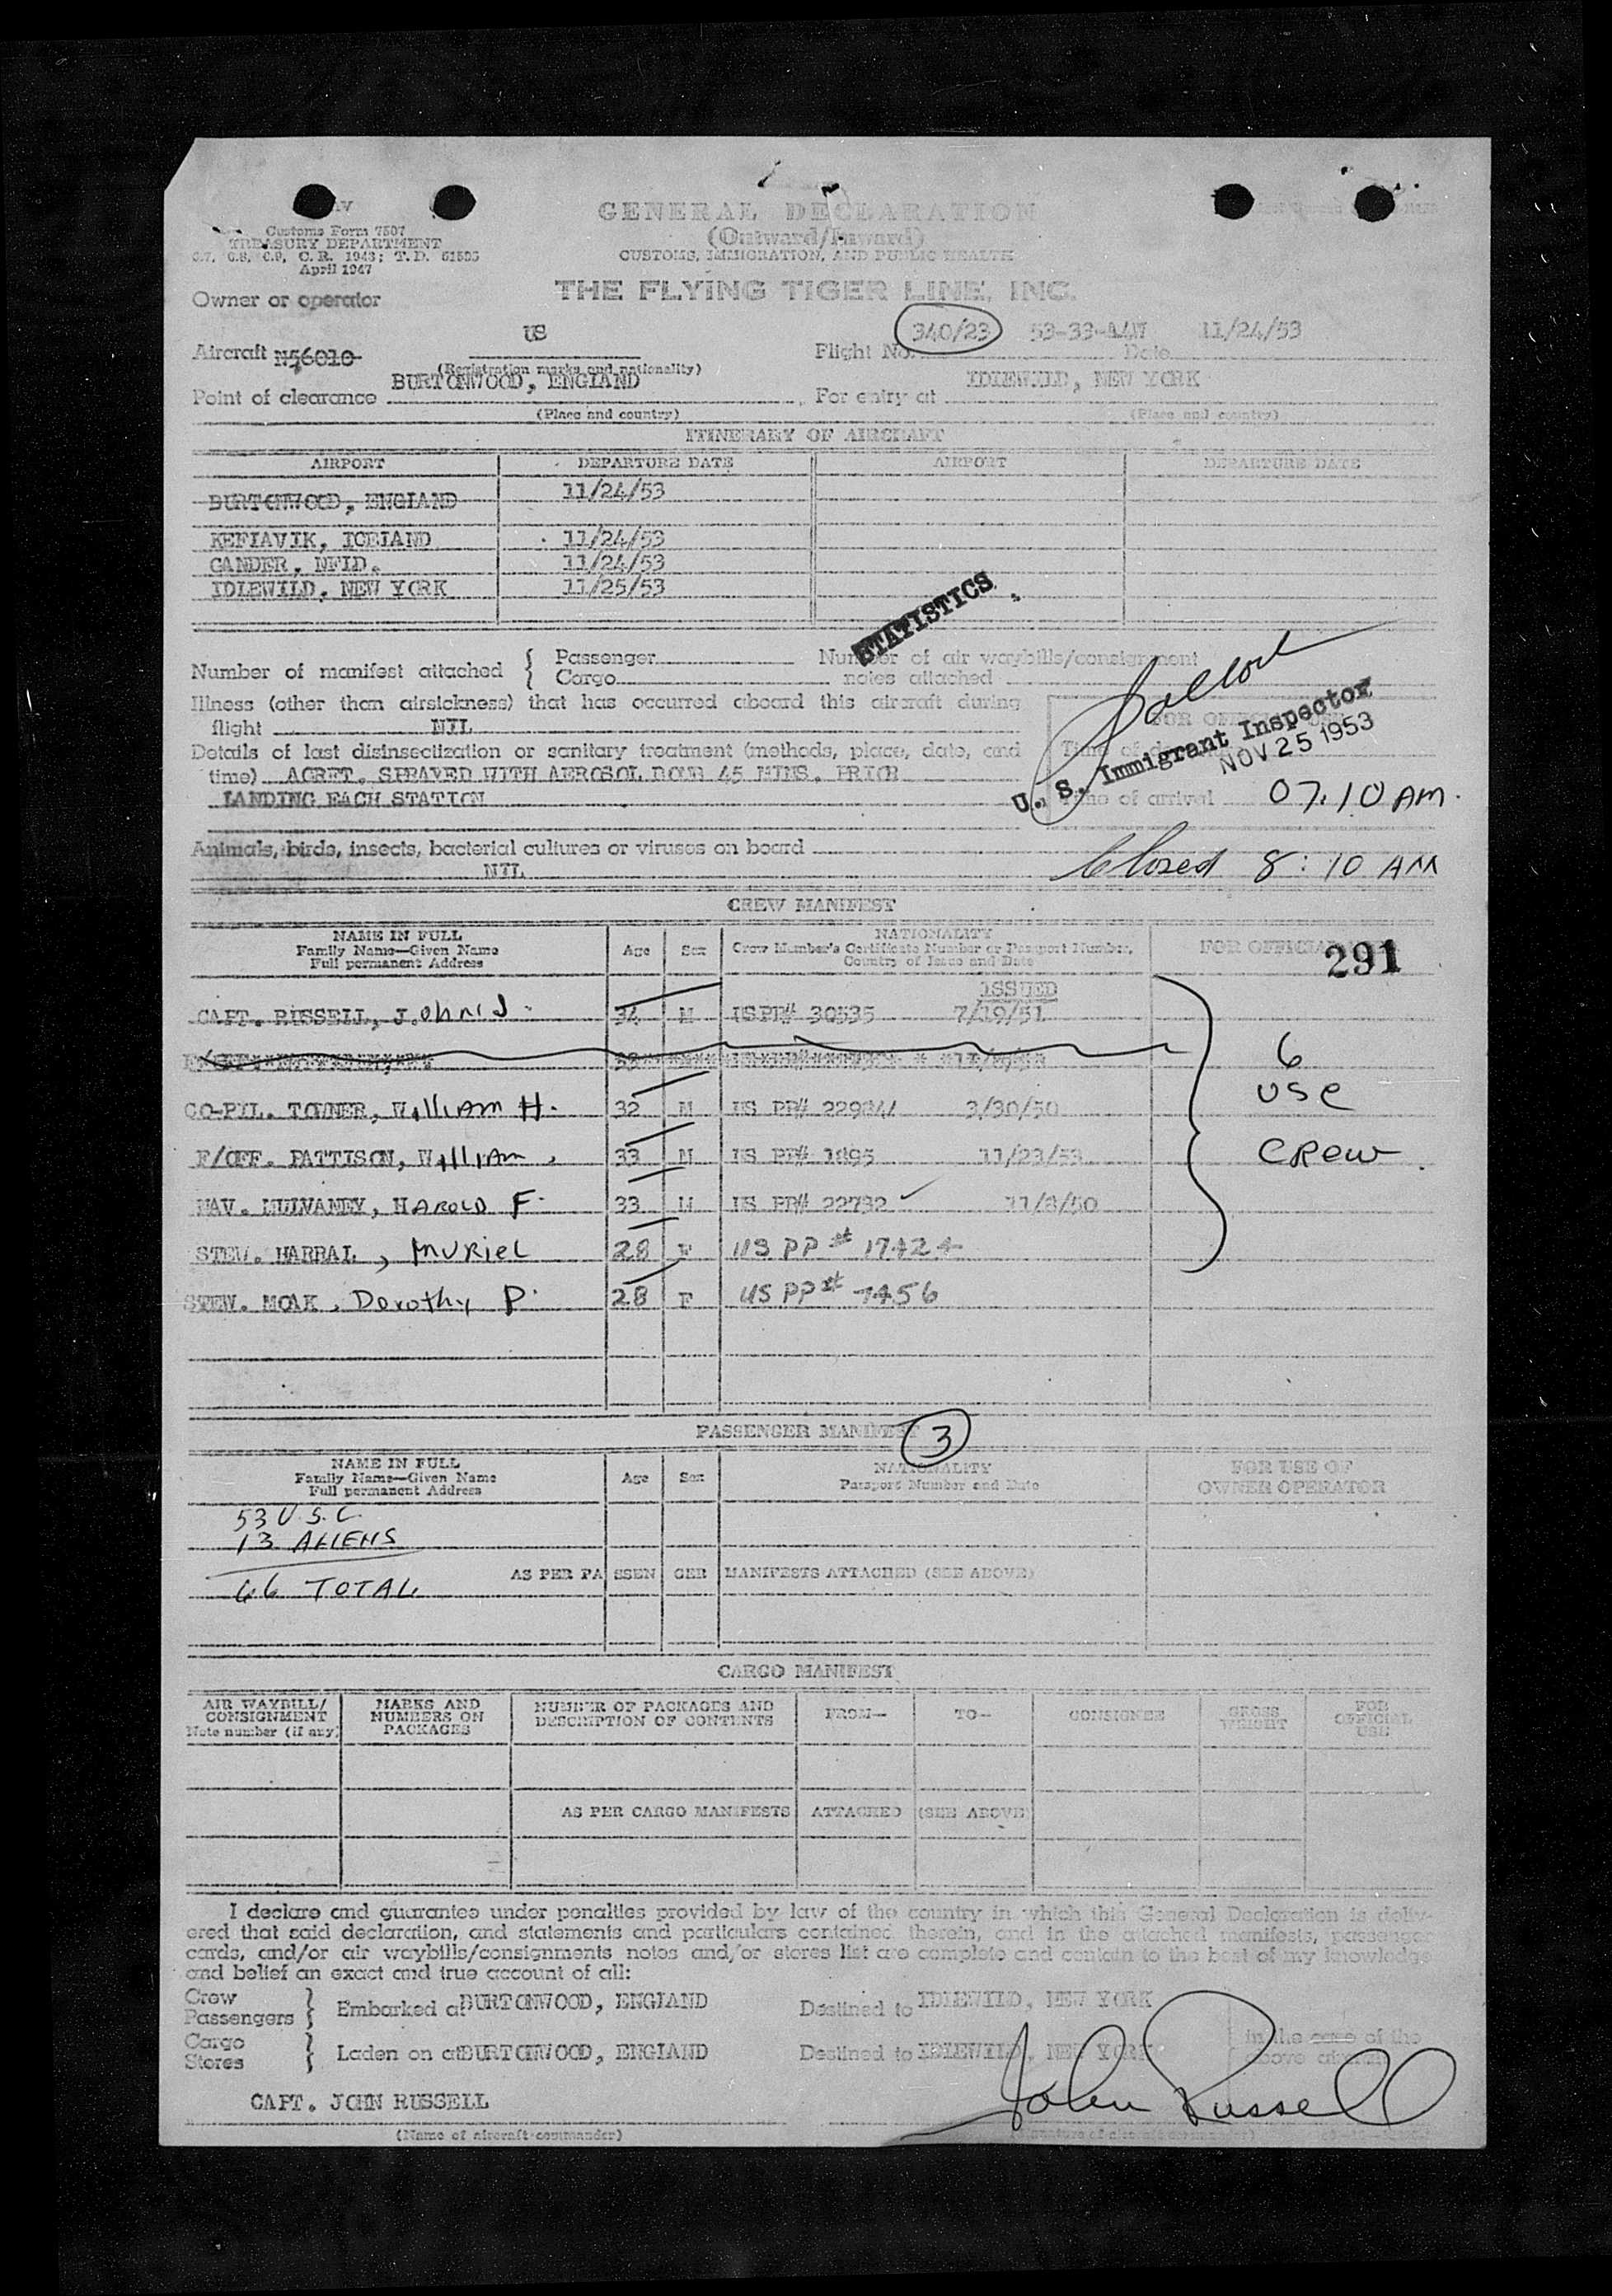 Customs Form 7507
TREASURY DEPARTMENT
April 1947
GENERAL DECLARATION
(Outward/Inward)
CUSTOMS, IMMIGRATION, AND PUBLIC HEALTH
Owner or operator THE FLYING TIGER LINE, INC.
Aircraft N56010 US Flight No. 340/23 53-33-AAW Date 11/24/53
(Registration marks and nationality)
Point of clearance BURTONWOOD, ENGLAND For entry at IDLEWILD, NEW YORK
(Place and country) (Place and country)
ITINERARY OF AIRCRAFT
AIRPORT DEPARTURE DATE AIRPORT DEPARTURE DATE
BURTONWOOD, ENGLAND 11/24/53
KEFLAVIK, ICELAND 11/24/53
GANDER, NFLD. 11/24/53
IDLEWILD, NEW YORK 11/25/53
STATISTICS
Number of manifest attached { Passenger Number of air waybills/consignment
Cargo notes attached
Illness (other than airsickness) that has occurred aboard this aircraft during
flight NIL
Details of last disinsectization or sanitary treatment (methods, place, date, and
time) ACRFT. SPRAYED WITH AEROSOL BOMB 45 MINS. PRIOR
LANDING EACH STATION
FOR OFFICIAL USE
U. S. Immigrant Inspector
NOV 25 1953
Time of arrival 07.10 AM.
Animals, birds, insects, bacterial cultures or viruses on board
NIL
Closed 8:10 AM
CREW MANIFEST
NAME IN FULL
Family Name—Given Name
Full permanent Address
Age Sex
NATIONALITY
Crew Member's Certificate Number or Passport Number,
Country of Issue and Date
FOR OFFICIAL
291
ISSUED
CAPT. RUSSELL, JOHN J. 34 M US PP# 30535 7/19/51
CO-PIL. TOWNER, William H. 32 M US PP# 3/30/50
F/OFF. PATTISON, William 33 M US PP# 1895 11/23/53
NAV. MULVANEY, HAROLD F. 33 M US PP# 22732 11/8/50
STEW. HARRAL, MURIEL 28 F US PP# 17424
STEW. MOAK, Dorothy P. 28 F US PP# 7456
6
USC
CREW
PASSENGER MANIFEST 3
NAME IN FULL
Family Name—Given Name
Full permanent Address
Age Sex
NATIONALITY
Passport Number and Date
FOR USE OF
OWNER OPERATOR
53 U.S.C.
13 ALIENS
66 TOTAL
AS PER PASSENGER MANIFESTS ATTACHED (SEE ABOVE)
CARGO MANIFEST
AIR WAYBILL/
CONSIGNMENT
Note number (if any)
MARKS AND
NUMBERS ON
PACKAGES
NUMBER OF PACKAGES AND
DESCRIPTION OF CONTENTS
FROM—
TO—
CONSIGNEE
GROSS
WEIGHT
FOR
OFFICIAL
USE
AS PER CARGO MANIFESTS ATTACHED (SEE ABOVE)
I declare and guarantee under penalties provided by law of the country in which this General Declaration is deliv-
ered that said declaration, and statements and particulars contained therein, and in the attached manifests, passenger
cards, and/or air waybills/consignments notes and/or stores list are complete and contain to the best of my knowledge
and belief an exact and true account of all:
Crew
Passengers } Embarked at BURTONWOOD, ENGLAND Destined to IDLEWILD, NEW YORK
Cargo
Stores } Laden on at BURTONWOOD, ENGLAND Destined to IDLEWILD, NEW YORK
in the case of the
above aircraft
CAPT. JOHN RUSSELL
John Russell
(Name of aircraft commander) (Signature of aircraft commander)